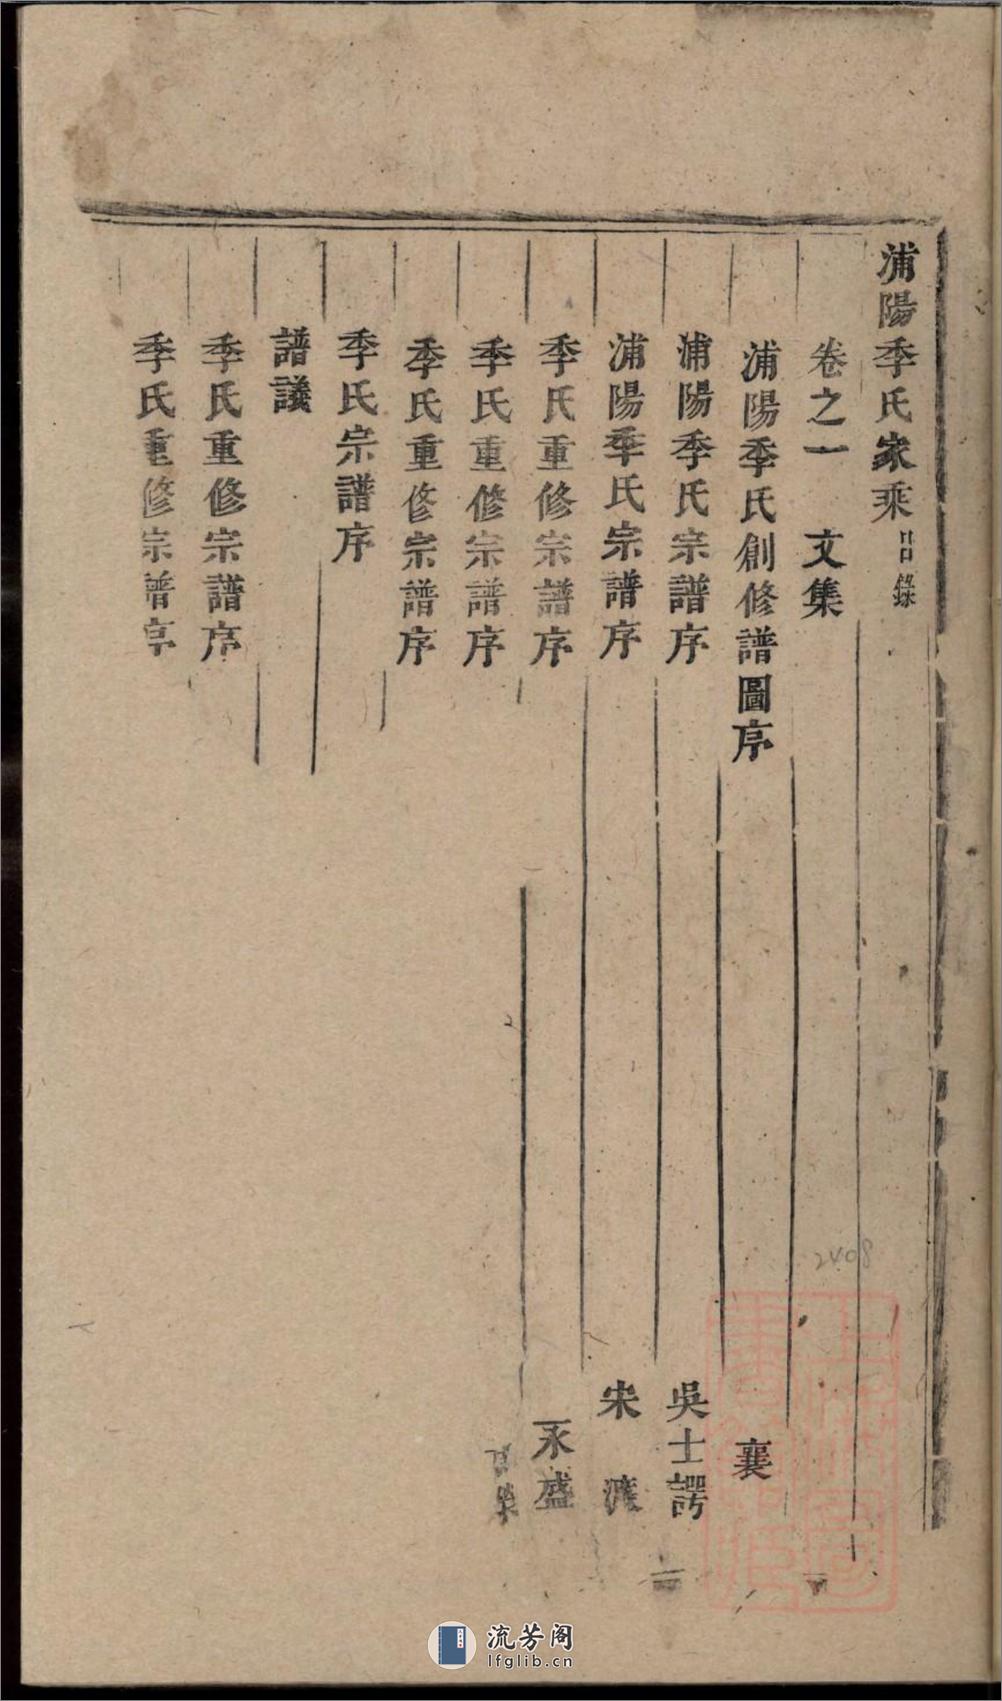 浦陽季氏家乘目錄
卷之一　文集
浦陽季氏創修譜圖序　襄
浦陽季氏宗譜序　吳士諤
浦陽季氏宗譜序　宋濂
季氏重修宗譜序　永盛
季氏重修宗譜序
季氏重修宗譜序
季氏宗譜序
譜議
季氏重修宗譜序
季氏重修宗譜序
2408
流芳阁
lfglib.cn